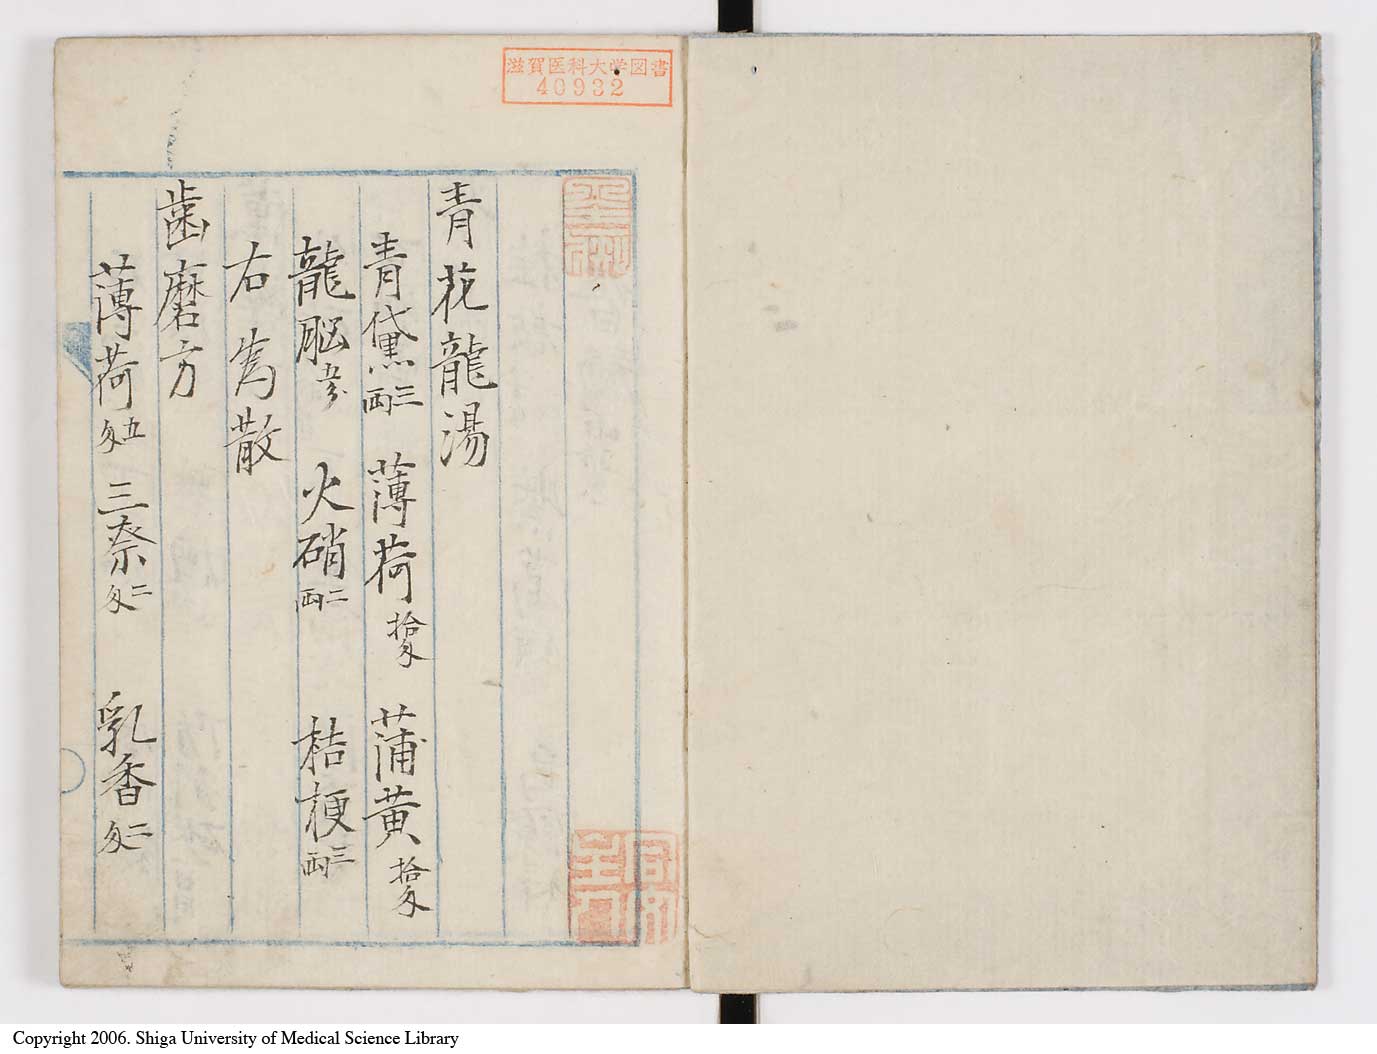 滋賀医科大学図書
40932
青花龍湯
青黛三両 薄荷拾匁 蒲黄拾匁
龍脳五分 火硝二両 桔梗三両
右為散
歯磨方
薄荷五匁 三奈二匁 乳香二匁
Copyright 2006. Shiga University of Medical Science Library